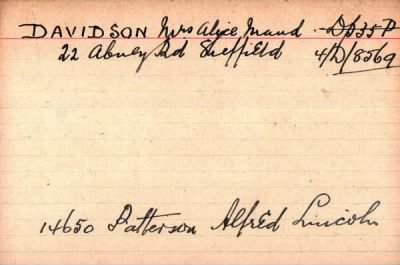 DAVIDSON Mrs Alice Maud D/335 P
22 Abney Rd Sheffield 4/D/8569
14650 Patterson Alfred Lincoln